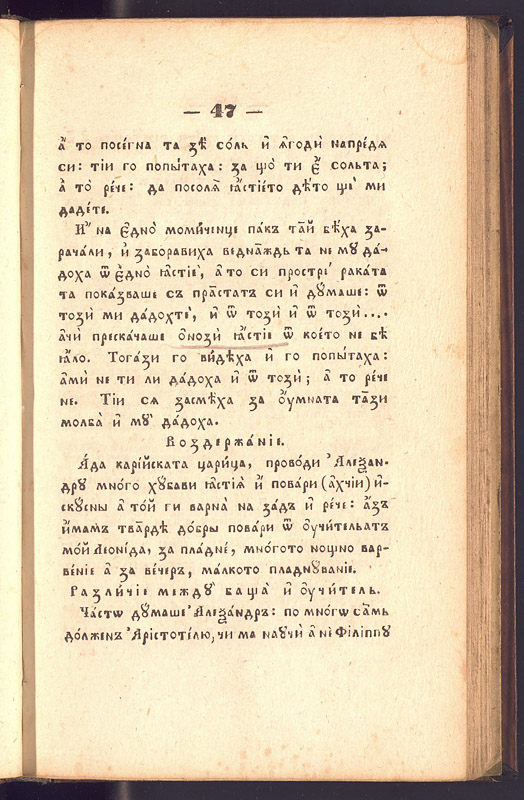 — 47 —
а҆̀ то посе́гна та зѐ со́ль и҆̀ ꙗ҆́годи напре́дѧ
си: ті́и го попы́таха: за що̀ ти є҆̀ сольта;
а҆̀ то̀ ре́че: да посолѧ̀ ꙗ҆стіе́то дѣ́то щѐ ми
даде́те.
И҆̀ на є҆дно̀ моми́ченце па́къ та́й бѣ́ха за-
рача́ли, и҆̀ заборавиха веднѫ́ждь та не му да́-
доха ѿ є҆дно̀ ꙗ҆стіѐ, а҆̀ то си прострѐ рака́та
та пока́зваше съ прѫ́статъ си и҆̀ ду́маше: ѿ
тозѝ ми да́дохтѐ, и҆̀ ѿ тозѝ и҆̀ ѿ тозѝ....
а҆́чи преска́чаше о҆нозѝ ꙗ҆́стіе ѿ кое́то не бѣ̀
ꙗ҆́ло. Тога́зи го ви́дѣха и҆̀ го попы́таха:
а҆мѝ не ти ли да́доха и҆̀ ѿ тозѝ; а҆̀ то ре́че
не. Ті́и сѧ засмѣ́ха за ᲂу҆́мната та́зи
молба̀ и҆̀ му̀ да́доха.
Воздержа́ніе.
А҆́да карі́йската цари́ца, прово́ди А҆леѯан-
дру мно́го ху́бави ꙗ҆́стіѧ и҆̀ пова́ри (ахчі́и) и҆-
ску́сны а҆̀ то́й ги варна̀ на за́дъ и҆̀ ре́че: а҆́зъ
и҆́мамъ твѫ́рдѣ до́бры пова́ри ѿ ᲂу҆чи́тельатъ
мо́й Леоні́да, за пла́днѐ, мно́гото нощно вар-
ве́ніе а҆̀ за ве́черъ, ма́лкото пладнува́ніе.
Разли́чіе между̀ баща̀ и҆̀ ᲂу҆чи́тель.
Ча́стѡ ду́маше А҆леѯа́ндръ: по мно́гѡ са́мь
до́лженъ А҆ристоті́лю, чи ма научѝ а҆̀ не Фі́ліппу